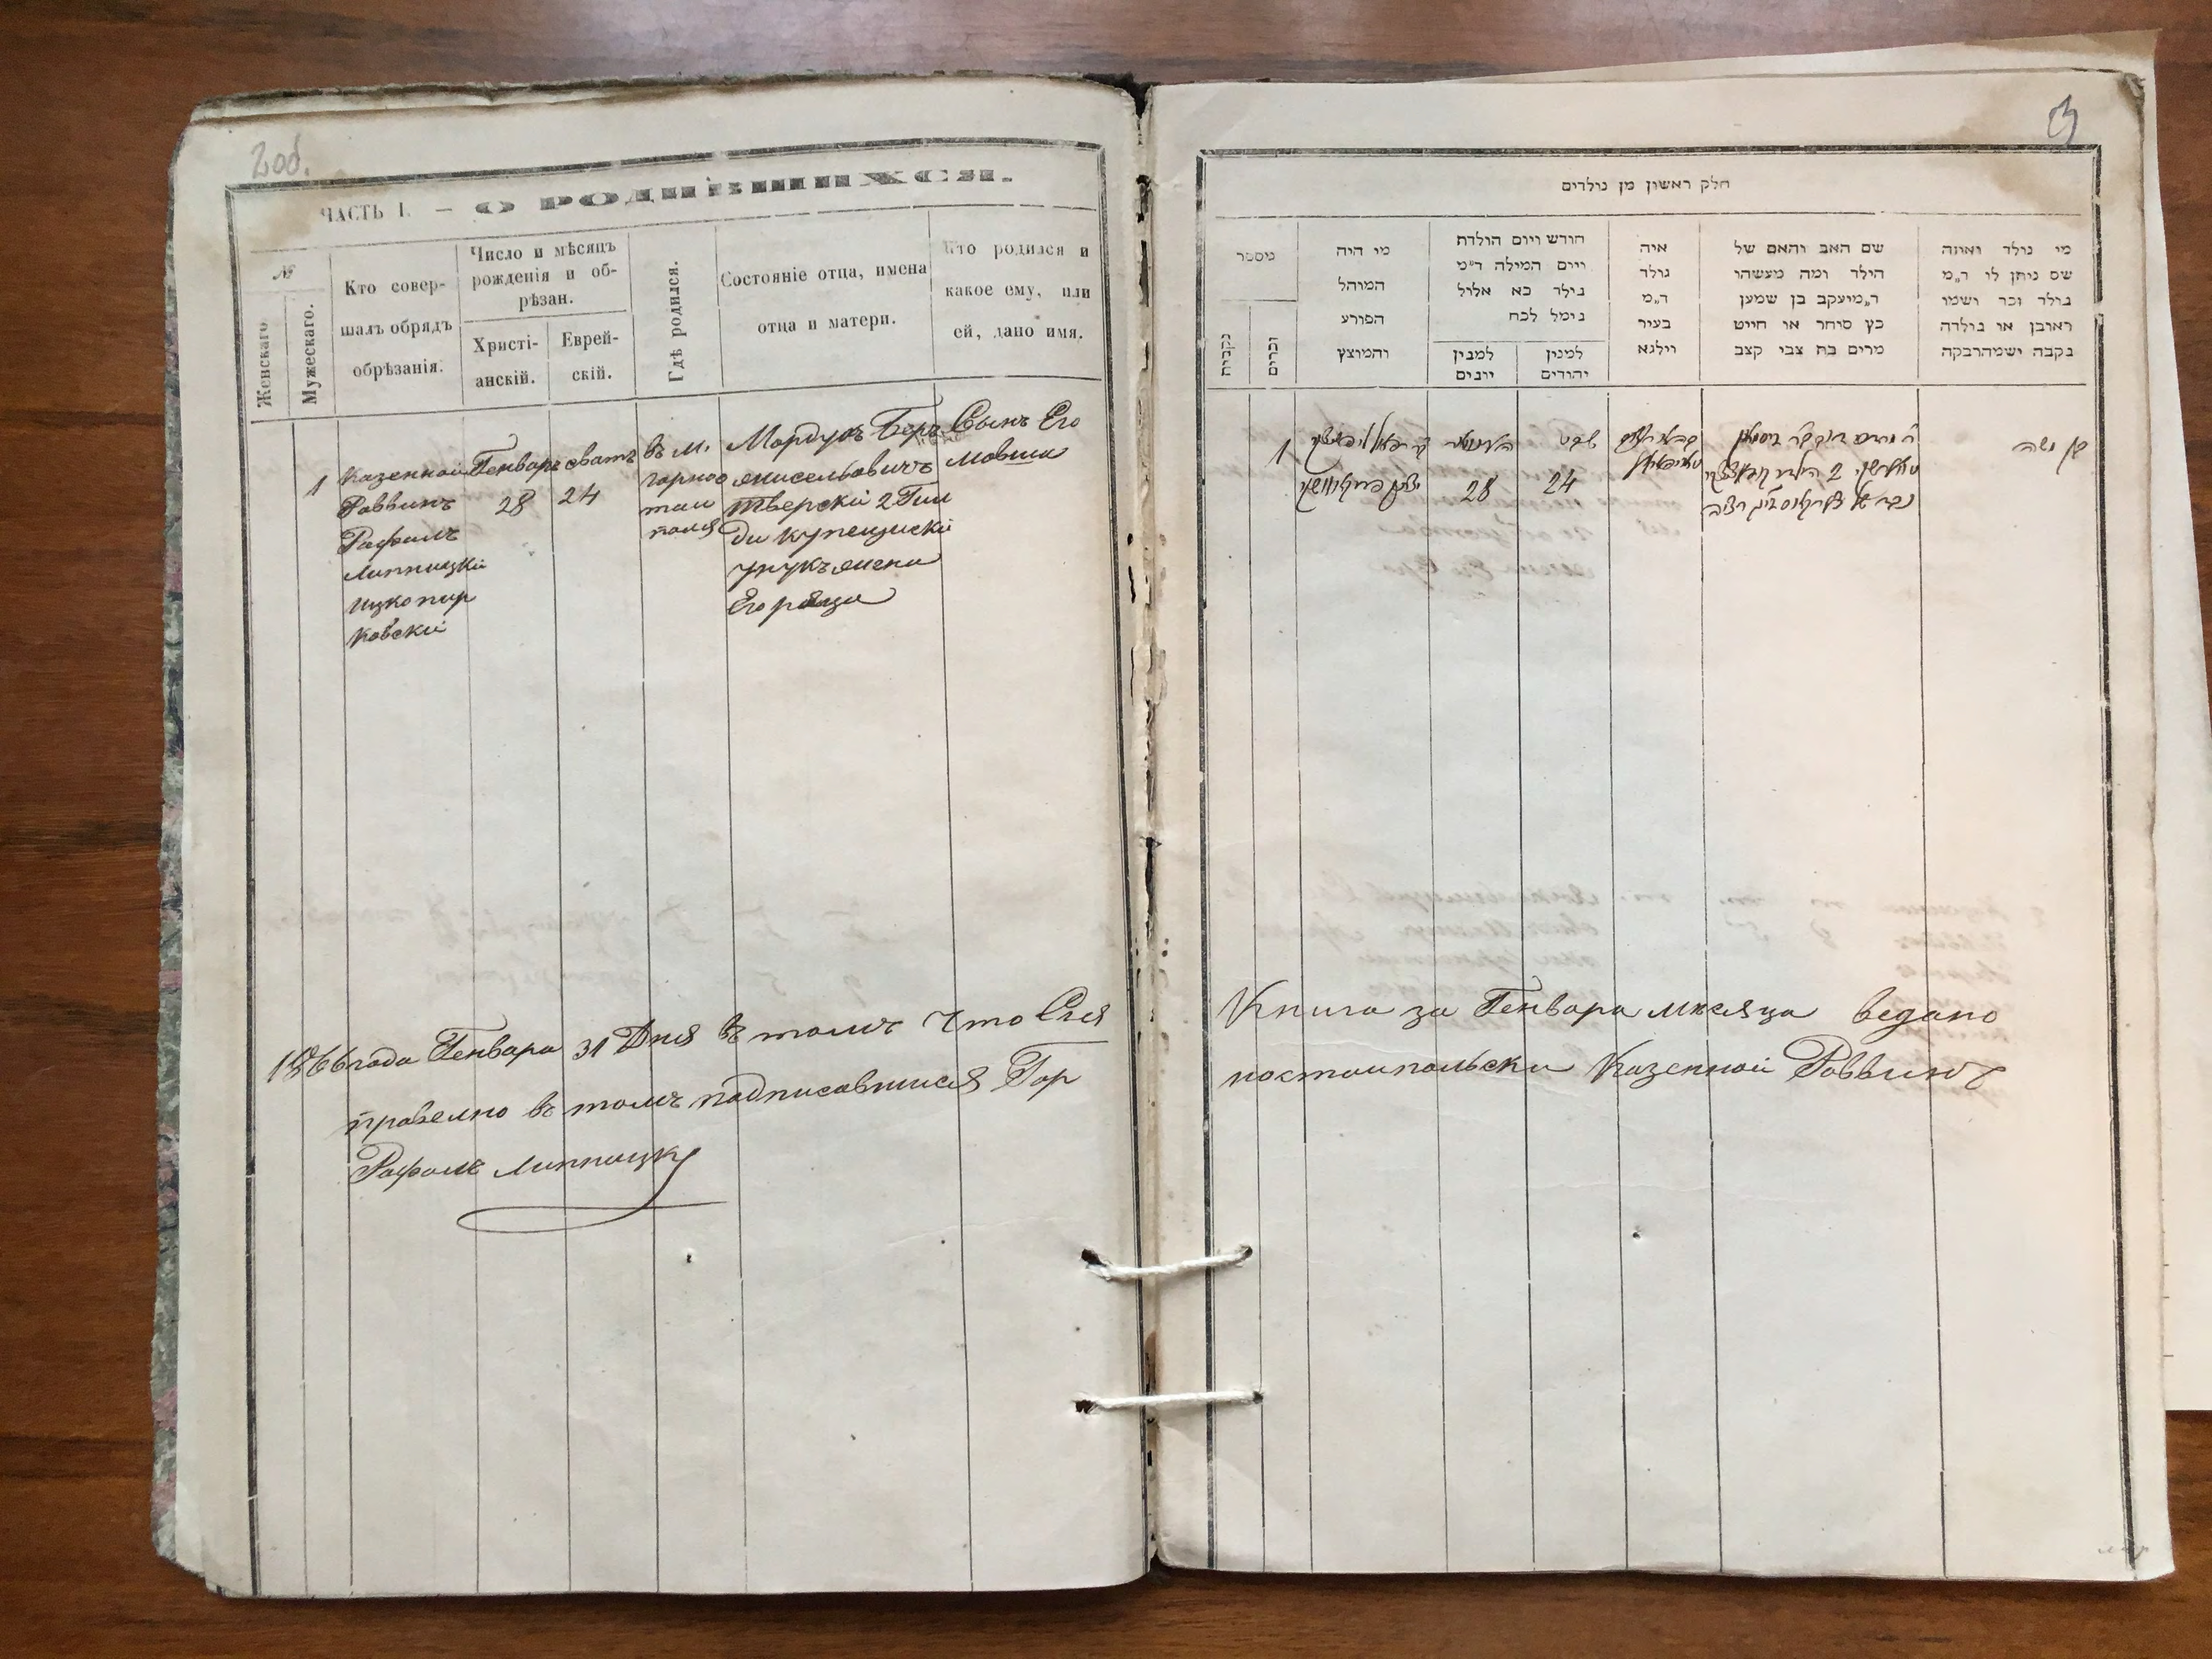 2 об.
ЧАСТЬ I. — О РОДИВШИХСЯ.
№
Женскаго
Мужескаго.
Кто совер-
шалъ обрядъ
обрѣзанія.
Число и мѣсяцъ
рожденія и об-
рѣзан.
Христі-
анскій.
Еврей-
скій.
Гдѣ родился.
Состояніе отца, имена
отца и матери.
Кто родился и
какое ему, или
ей, дано имя.
1
Казенной
Раввинъ
Рафаилъ
Липницкій
Ицко пир
ковскій
Генваръ
28
сватъ
24
въ м.
горно
стаи
поля
Мордухъ Беръ
Тверскій 2 Гил
ди купецческій
унукъ жена
Его
Сынъ Его
Мовша
1866 года Генваря 31 Дня въ томъ что Сія
правелно въ томъ подписавшися Гор
Рафаилъ Липницк
3
חלק ראשון מן נולדים
מיספר
נקבות
זכרים
מי היה
המוהל
הפורע
והמוצץ
חודש ויום הולדת
ויום המילה ד״מ
נולד כא אלול
נימל לכח
למנין
יונים
למנין
יהודים
איה
נולד
ד״מ
בעיר
ווילנא
שם האב והאם של
הילד ומה מעשהו
ד״מ יעקב בן שמען
כץ סוחר או חייט
מרים בת צבי קצב
מי נולד ואיזה
שם ניתן לו ד״מ
נולד זכר ושמו
ראובן או נולדה
נקבה ושמה רבקה
1
28
שבט
24
בן משה
Книга за Генвара месяца ведано
ностаипольски Казенной Раввинъ